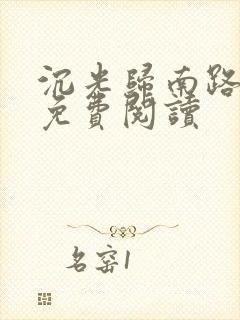 沉光歸南路
免費閱讀
名窑1